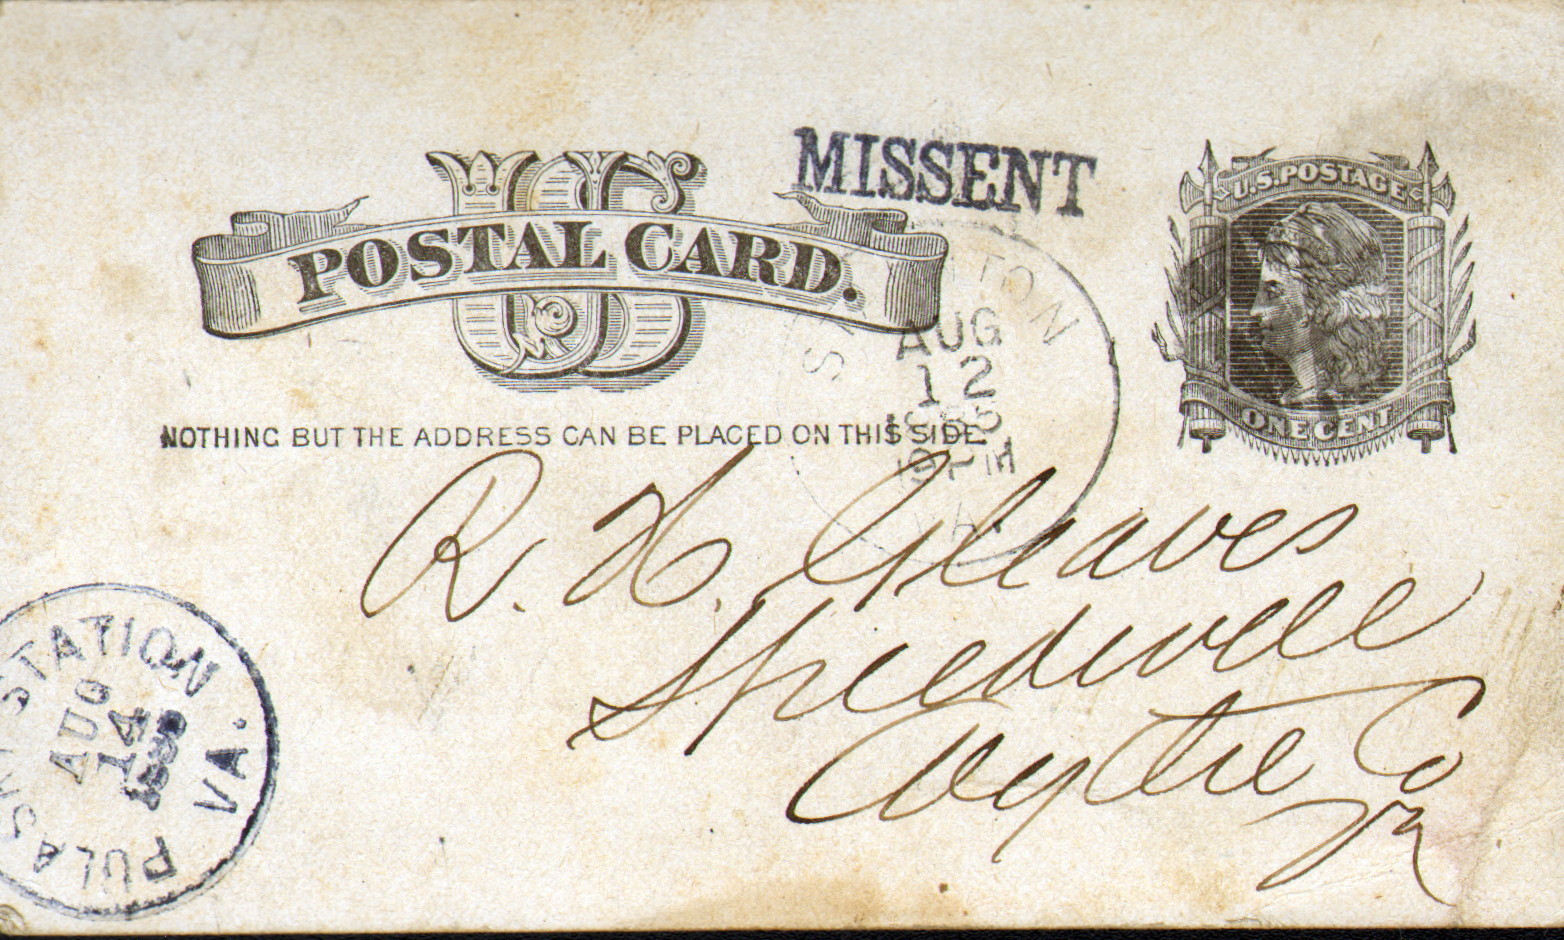 MISSENT
U.S. POSTAGE
US
POSTAL CARD.
ONE CENT
NOTHING BUT THE ADDRESS CAN BE PLACED ON THIS SIDE.
TON
AUG
12
PM
VA.
R. H. Gleaves
Speedwell
Wythe Co
Va
PULASKI STATION VA.
AUG
14